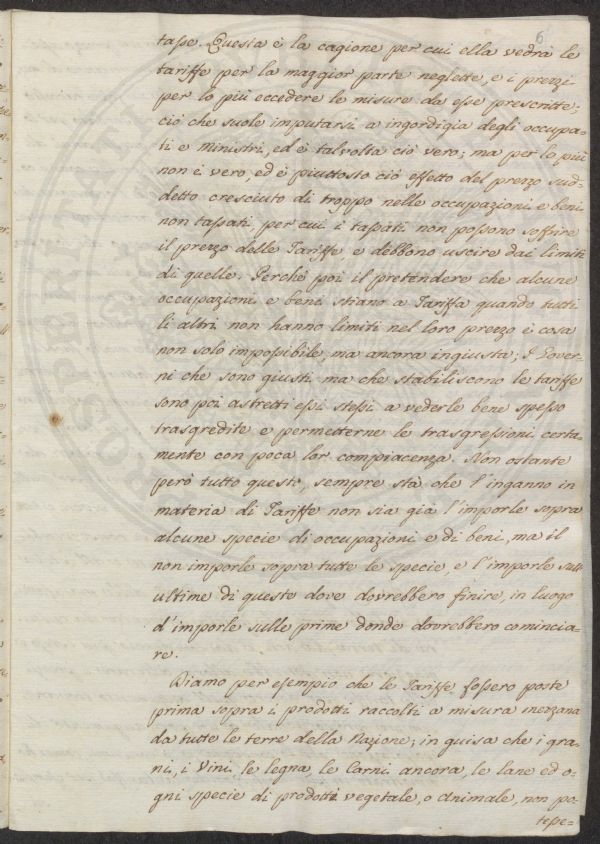 6
tasse. Questa è la cagione per cui ella vedrà le
tariffe per la maggior parte neglette, e i prezzi
per lo più eccedere le misure da esse prescritte;
ciò che suole imputarsi a ingordigia degli occupa=
ti e Ministri, ed è talvolta ciò vero; ma per lo più
non è vero, ed è piuttosto ciò effetto del prezzo sud=
detto cresciuto di troppo nelle occupazioni e beni
non tassati, per cui i tassati non possono soffrire
il prezzo delle Tariffe, e debbono uscire dai limiti
di quelle. Perchè poi il pretendere che alcune
occupazioni e beni stiano a Tariffa quando tutti
li altri non hanno limiti nel loro prezzo è cosa
non solo impossibile, ma ancora ingiusta; I Gover=
ni che sono giusti ma che stabiliscono le tariffe
sono poi astretti essi stessi a vederle bene spesso
trasgredite e permetterne le trasgressioni certa=
mente con poca lor compiacenza. Non ostante
però tutto questo, sempre stà che l'inganno in
materia di Tariffe non sia già l'imporle sopra
alcune specie di occupazioni e di beni, ma il
non imporle sopra tutte le specie, e l'imporle sull'
ultime di queste dove dovrebbero finire, in luogo
d'imporle sulle prime donde dovrebbero comincia=
re.
Diamo per esempio che le Tariffe fossero poste
prima sopra i prodotti raccolti a misura mezzana
da tutte le terre della Nazione; in guisa che i gra=
ni, i Vini le legna, le Carni ancora, le lane ed o=
gni specie di prodotti vegetale, o Animale, non po=
tesse=